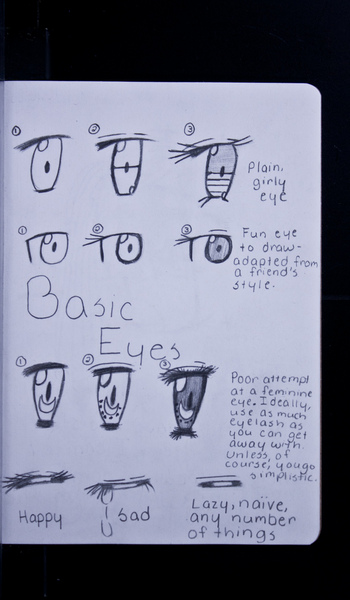 ① ② ③
Plain,
girly
eye
① ② ③
Fun eye
to draw-
adapted from
a friend's
style.
Basic
Eyes
① ② ③
Poor attempt
at a feminine
eye. Ideally,
use as much
eyelash as
you can get
away with.
Unless, of
course, you go
simplistic.
Happy
Sad
Lazy, naïve,
any number
of things